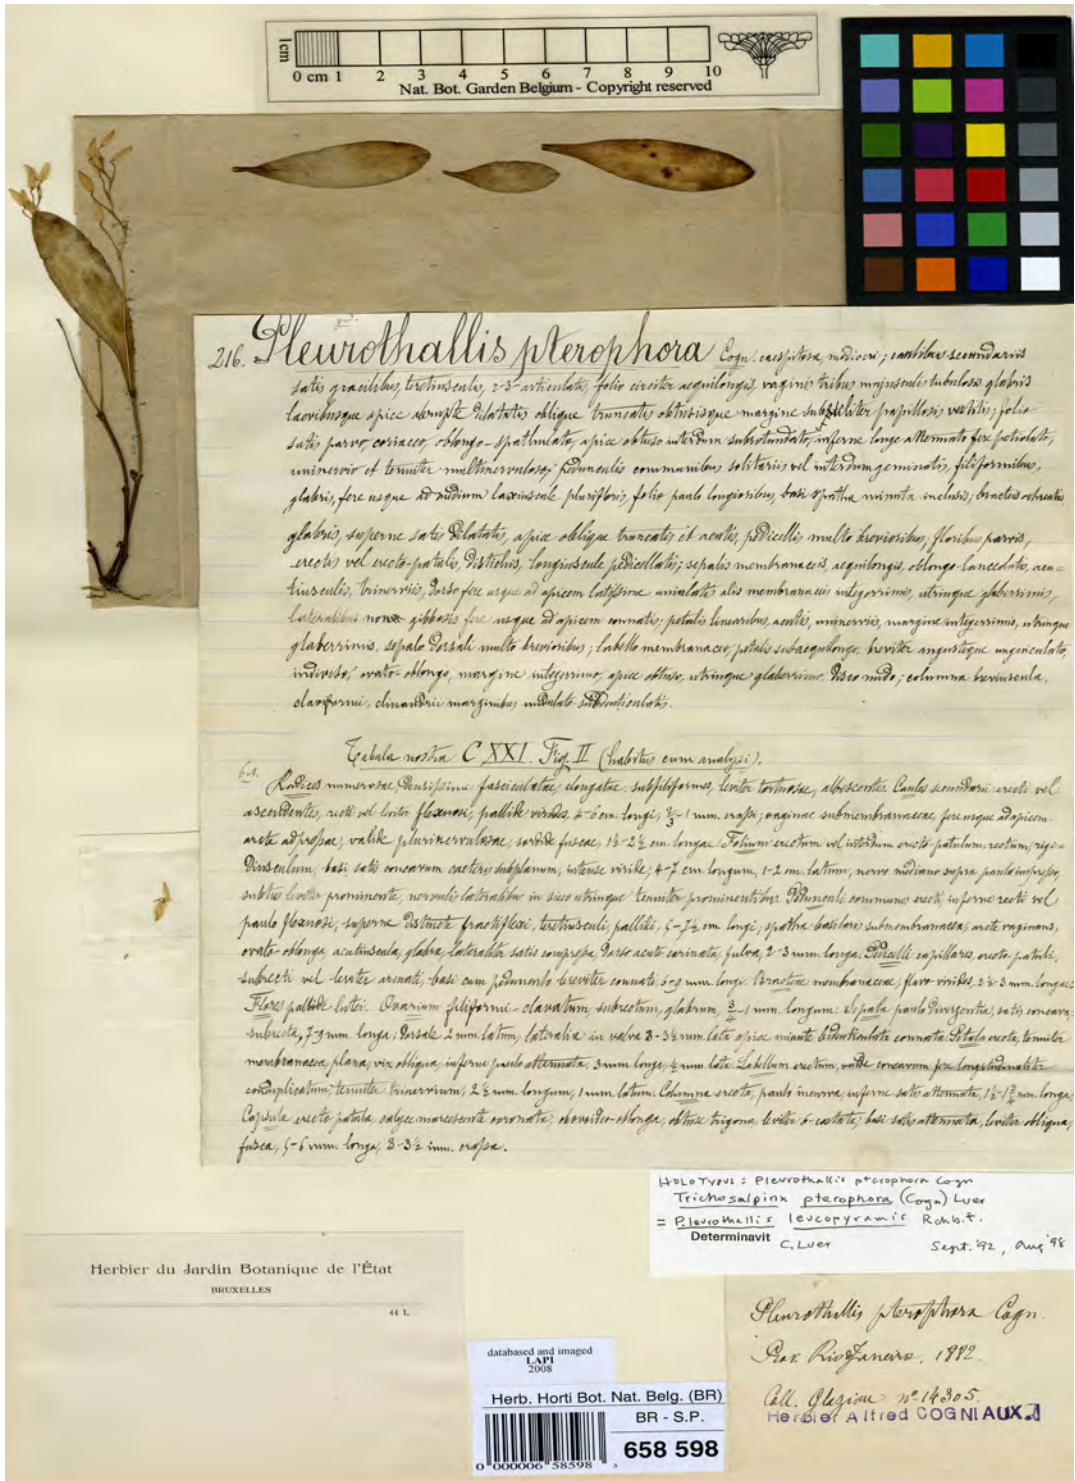 1cm
0 cm 1 2 3 4 5 6 7 8 9 10
Nat. Bot. Garden Belgium - Copyright reserved
216. Pleurothallis pterophora Cogn. caespitosa, mediocri; caulibus secundariis
satis gracilibus, teretiusculis, 2-3-articulatis, folio circiter aequilongis, vaginis tribus majusculis tubulosis glabris
laevibusque apice abrupte dilatatis oblique truncatis obtusisque margine subtiliter papillosis vestitis; folio
satis parvo, coriaceo, oblongo-spathulato, apice obtuso interdum subrotundato, inferne longe attenuato fere petiolato,
uninervio et tenuiter multinervuloso; pedunculis communibus solitariis vel interdum geminatis, filiformibus,
glabris, fere usque ad medium laxiuscule plurifloris, folio paulo longioribus, basi spatha minuta inclusis; bracteis ochreatis
glabris, superne satis dilatatis, apice oblique truncatis et acutis, pedicellis multo brevioribus; floribus parvis,
erectis vel erecto-patulis, distichis, longiuscule pedicellatis; sepalis membranaceis, aequilongis, oblongo-lanceolatis, acu-
tiusculis, trinerviis, dorso fere usque ad apicem latissime unialatis alis membranaceis integerrimis, utrinque glaberrimis,
lateralibus non gibbosis fere usque ad apicem connatis; petalis linearibus, acutis, uninerviis, margine integerrimis, utrinque
glaberrimis, sepalo dorsali multo brevioribus; labello membranaceo, petalis subaequilongo, breviter angusteque unguiculato,
indiviso, ovato-oblongo, margine integerrimo, apice obtuso, utrinque glaberrimo, disco nudo; columna breviuscula,
claviformi, clinandrii marginibus undulato-subdenticulatis.
Tabula nostra CXXI. Fig. II (habitus cum analysi).
Radices numerosae, densissime fasciculatae, elongatae, subfiliformes, leviter tortuosae, albescentes. Caules secundarii erecti vel
ascendentes, recti vel leviter flexuosi, pallide virides, 4-6 cm. longi, 2/3-1 mm. crassi; vaginae submembranaceae, fere usque ad apicem
arcte adpressae, valide plurinervulosae, sordide fuscae, 1½-2½ cm. longae. Folium erectum vel interdum erecto-patulum, rectum, rigi-
diusculum, basi satis concavum caeteris subplanum, intense viride, 4-7 cm. longum, 1-2 cm. latum, nervo mediano supra paulo impresso,
subtus leviter prominente, nervulis lateralibus in sicco utrinque tenuiter prominentibus. Pedunculi communes erecti, inferne recti vel
paulo flexuosi, superne distincte fractiflexi, teretiusculi, pallidi, 5-7½ cm. longi; spatha basilaris submembranacea, arcte vaginans,
ovato-oblonga, acutiuscula, glabra, lateraliter satis compressa, dorso acute carinata, fulva, 2-3 mm. longa. Pedicelli capillares, erecto-patuli,
subrecti vel leviter arcuati, basi cum pedunculo breviter connati, 6-9 mm. longi. Bracteae membranaceae, flavo-virides, 2½-3 mm. longae.
Flores pallide lutei. Ovarium filiformi-clavatum, subrectum, glabrum, ¾-1 mm. longum. Sepala paulo divergentia, satis concava,
subrecta, 7-9 mm. longa; dorsale 2 mm. latum, lateralia in valva 3-3½ mm. lata apice minute bidenticulata connata. Petala erecta, tenuiter
membranacea, plana, vix obliqua, inferne paulo attenuata, 3 mm. longa, ½ mm. lata. Labellum erectum, valde concavum fere longitudinaliter
conduplicatum, tenuiter trinervium, 2½ mm. longum, 1 mm. latum. Columna erecta, paulo incurva, inferne satis attenuata, 1½-1¾ mm. longa.
Capsula erecto-patula, calyce marcescente coronata, obovoideo-oblonga, obtuse trigona, leviter 6-costata, basi satis attenuata, leviter obliqua,
fusca, 5-6 mm. longa, 3-3½ mm. crassa.
HOLOTYPUS: Pleurothallis pterophora Cogn
Trichosalpinx pterophora (Cogn) Luer
= Pleurothallis leucopyramis Rchb.f.
Determinavit C. Luer Sept. '92, Aug '98
Herbier du Jardin Botanique de l'État
BRUXELLES
44 L
Pleurothallis pterophora Cogn.
Prov. Rio Janeiro. 1882.
Coll. Glaziou nº 14305.
Herbier Alfred COGNIAUX.
databased and imaged
LAPI
2008
Herb. Horti Bot. Nat. Belg. (BR)
BR - S.P.
658 598
0 000006 58598